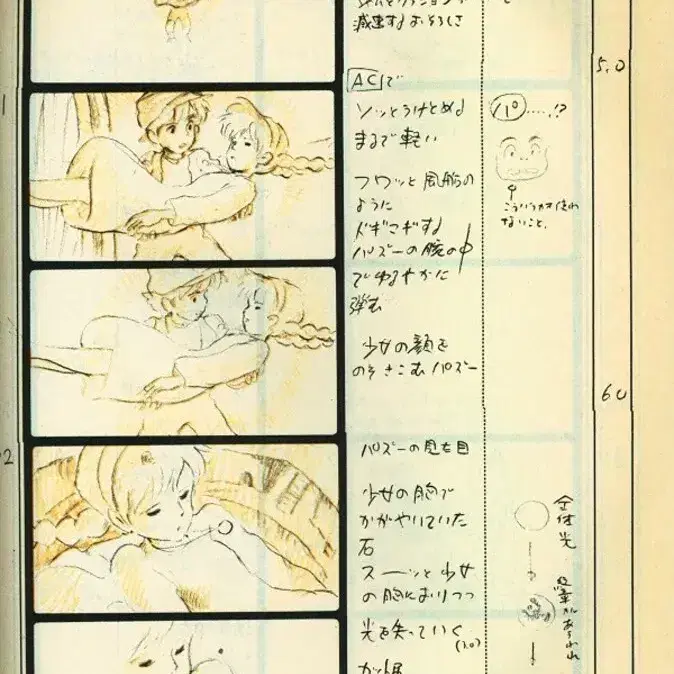 減速するおそろしさ
5.0
ACで
ソッとうけとめる
まるで軽い
フワッと風船の
ように
ドギマギする
パズーの腕の中
でゆるやかに
弾む
少女の顔を
のぞきこむパズー
1
パ.....!?
こういうカオ使わ
ないこと、
6.0
2
パズーの見た目
少女の胸で
かがやいていた
石
スーッと少女
の胸におりつつ
光を失っていく
(3.0)
全体光
紋章があらわれ